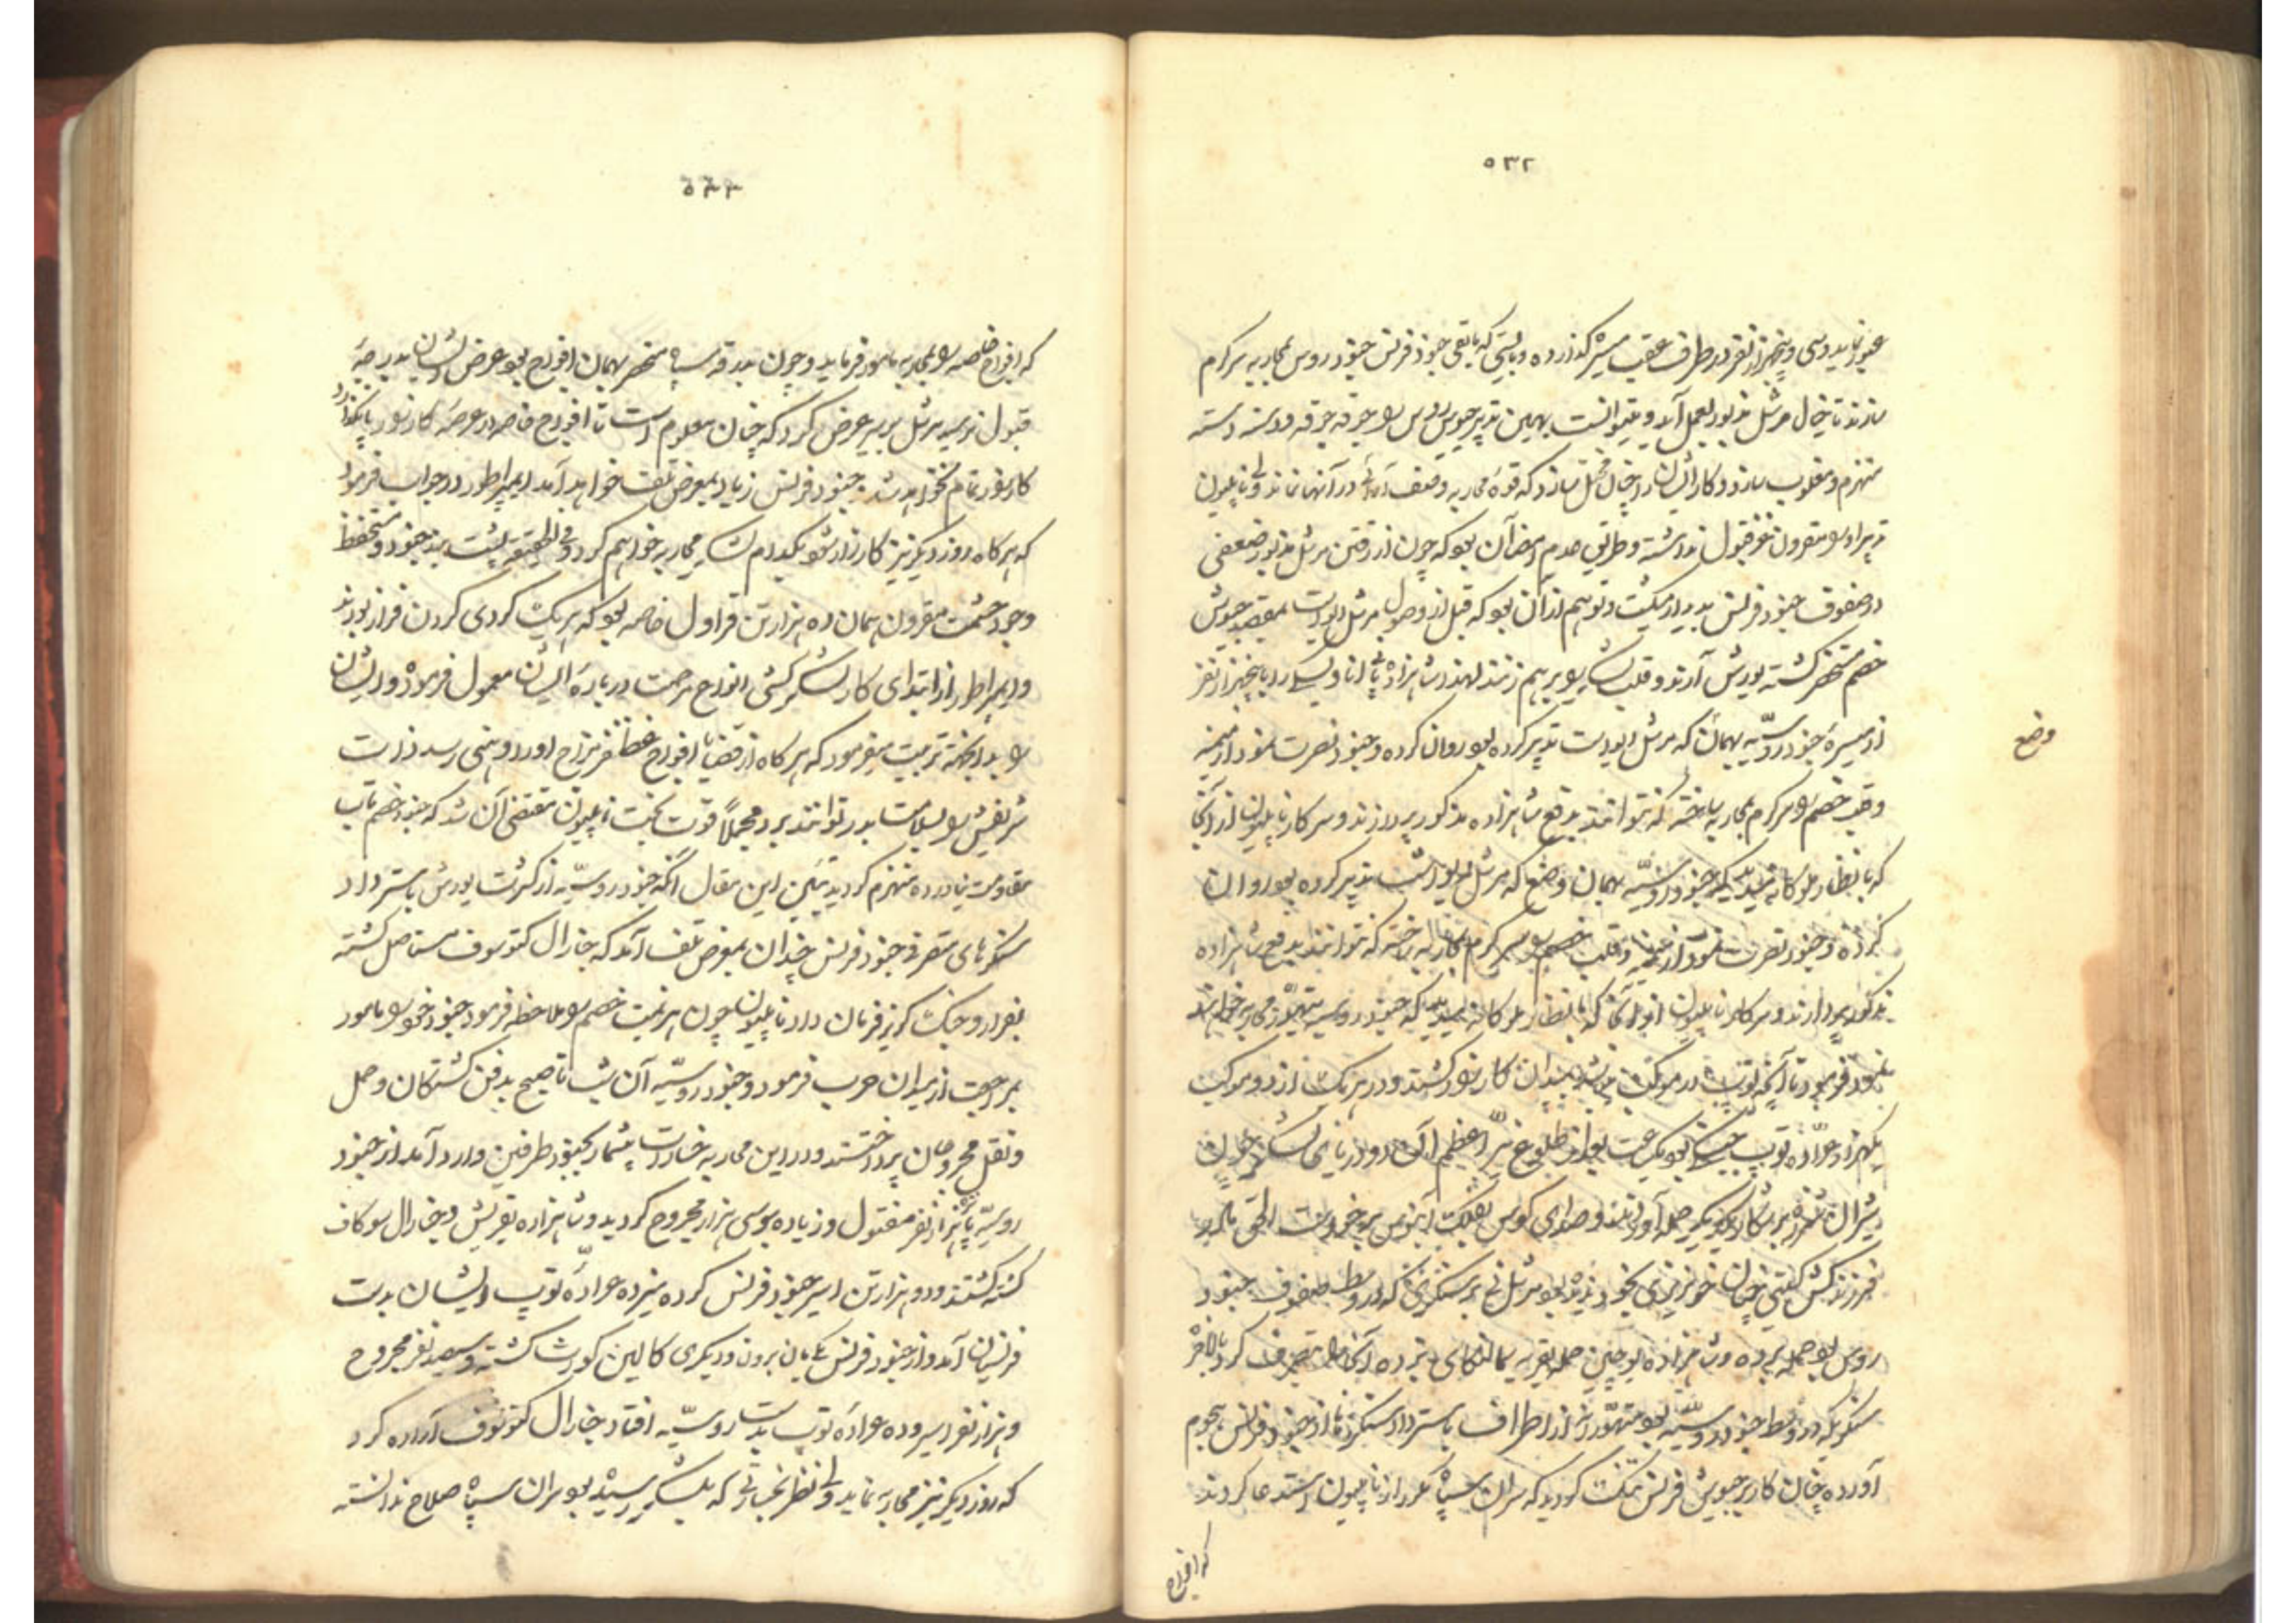 ۵۳۲
عبور نماید و سی و پنجهزار نفر در طرف عقب میسره گذارده و بایستی که باقی جنود فرنس جنود روس بمحاربه سرگرم
سازند تا خیال مرشل مذبور بعمل آمد و میتوانست بهمین تدبیر جیوش روس را جوقه جوقه و دسته دسته
منهزم و مغلوب سازد و کار ایشان را چنان مختل سازد که قوهٔ محاربه و صف آرائی در آنها نماند ولی ناپلیون
تدبیر او را مقرون بقبول نداشته و طریق عدم امضا آن بود که چون از رفتن مرشل مذبور ضعفی
در صفوف جنود فرنس پدیدار میگشت و توهم از آن بود که قبل از وصول مرشل داودت بمقصد جیوش
خصم مستحضر گشته یورش آرند و قلب را بر هم زنند لهذا شاهزاده پانی اتاوسکی را با پنجهزار نفر
از میسرهٔ جنود روسیه بهمان که مرشل داودت تدبیر کرده بود روان کرده و جنود نصرت نمود از میمنه
وضع
و قلب خصم را سرگرم محاربه ساخته که نتوانند بدفع شاهزاده مذکور پردازند و سرکار ناپلیون از آنجا
که بانظار ملوکانه دید که جنود روسیه بهمان وضع که مرشل مذبور تدبیر کرده بود روان
کرده و جنود نصرت نمود از میمنه و قلب خصم را سرگرم محاربه ساخته که نتوانند بدفع شاهزاده
مذکور پردازند و سرکار ناپلیون از آنجا که بانظار ملوکانه دید که جنود روسیه محاربه خواهند
نمود فرمود تا آنچه توپ در موکب بود بمیدان کارزار کشیدند و در هر یک از دو موکب
یکهزار عراده توپ بود از طلوع نیر اعظم آن دو دریای لشکر چون
شیران بر شکار یکدیگر حمله آوردند و صدای کوس بفلک آبنوس برخورد الحق مادر
فرزندکش گیتی چنان خونریزی بخود ندیده بود مرشل نی بر سنگری که در وسط صفوف جنود
روس بود حمله برده و شاهزاده یوجین حمله بقریه آنجا را متصرف گردید بالاخره
سنگریکه در وسط جنود روسیه بود متهورانه از اطراف باسترداد سنگر از جنود فرنس هجوم
آورده چنان کار بر جیوش فرنس تنگ گردید که سران سپاه مکرر از ناپلیون استدعا کردند
که افواج
۵۳۳
که افواج خاصه را بمحاربه مامور فرماید و چون بدرقه سپاه منحصر بهمان افواج بود عرض ایشان بدرجهٔ
قبول نرسید مرشل برسیر عرض کرد که چنان معلوم است تا افواج خاصه در عرصهٔ کارزار پا نگذارد
کارزار تمام نخواهد شد جنود فرنس زیاد بمعرض تلف خواهد آمد ایمپراطور در جواب فرمود
که هرگاه روز دیگر نیز کارزار شود بکدام لشکر محاربه خواهیم کرد و فی الحقیقه پشت بند جنود و مستحفظ
وجود حشمت مقرون همان ده هزار تن قراول خاصه بود که هر یک گردی گردن فراز بودند
و ایمپراطور از ابتدای کار لشکرکشی انواع مرحمت در بارهٔ ایشان معمول فرموده و ایشان
را بدانجهة تربیت میفرمود که هرگاه از قضا بافواج ظفر مزاج اورا وهنی رسد ذات
شریفش را بسلامت بدر توانند برد مجملاً قوت بخت ناپلیون مقتضی آن شد که جنود خصم تاب
مقاومت نیاورده منهزم گردید تبیین این مقال آنکه جنود روسیه از کثرت یورش باسترداد
سنگرهای متصرفی جنود فرنس چندان بمعرض تلف آمد که جنارال کتوسوف مستاصل گشته
بفرار و جنگ گریز فرمان داد ناپلیون چون هزیمت خصم را ملاحظه فرمود جنود خود را مامور
بمراجعت از میدان حرب فرمود و جنود روسیه آن شب تا صبح بدفن کشتگان و حمل
و نقل مجروحان پرداختند و در این محاربه خسارت بیشمار بجنود طرفین وارد آمد از جنود
روسیه پانزده هزار نفر مقتول و زیاده بر سی هزار مجروح گردید و شاهزاده تفریش و جنارال سوکاف
کشته گشتند و دو هزار تن اسیر جنود فرنس کرده سیزده عراده توپ ایشان بدست
فرنسیان آمد و از جنود فرنس یکی بارن برون و دیگری کالین کورت کشته و سیصد نفر مجروح
و هزار نفر اسیر و ده عراده توپ بدست روسیه افتاد جنارال کتوسوف اراده کرد
که روز دیگر نیز محاربه نماید ولی نظر بخساراتی که بلشکر رسیده بود سران سپاه صلاح ندانسته